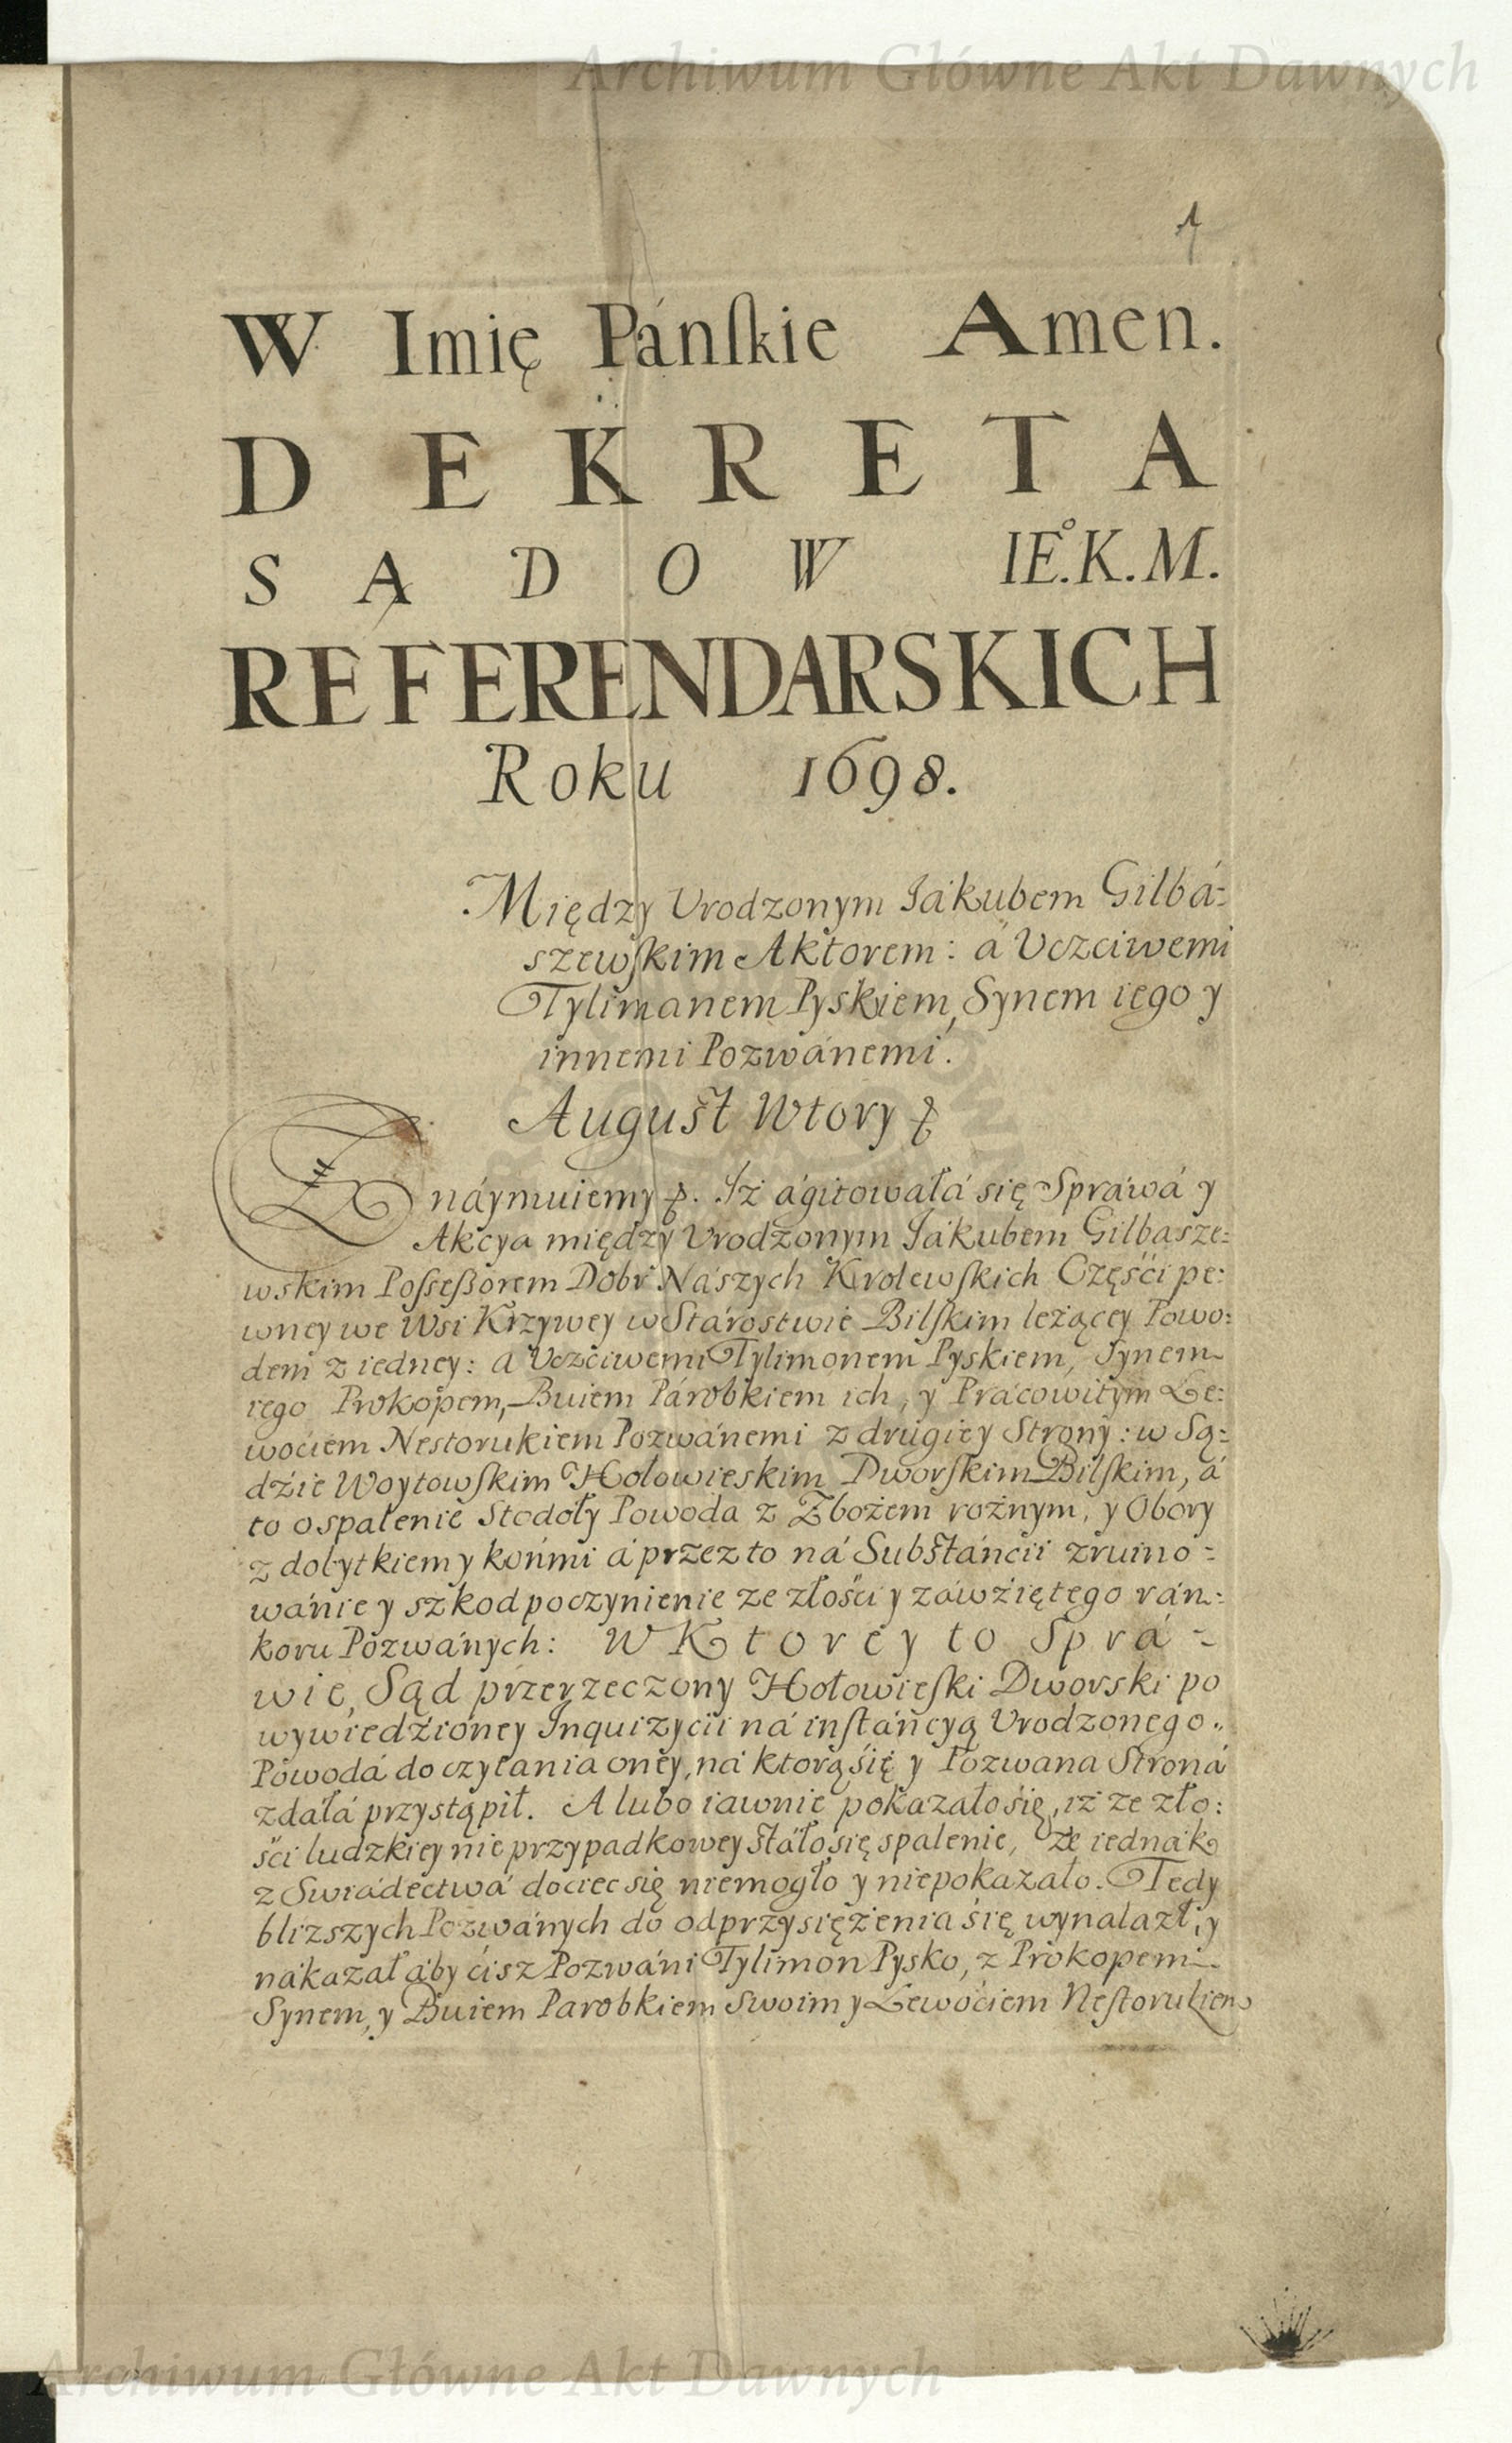 Archiwum Główne Akt Dawnych
1
W Imię Pánſkie Amen.
DEKRETA
SĄDOW IEº.K.M.
REFERENDARSKICH
Roku 1698.
Między Urodzonym Jákubem Gilbá-
szewſkim Aktorem: á Uczciwemi
Tylimanem Pyskiem, Synem iego y
innemi Pozwánemi.
August Wtory
Znáymuiemy. Iż ágitowałá się Spráwá y
Akcya między Urodzonym Jákubem Gilbasze:
wskim Poſseßorem Dobr Nászych Krolewſkich Częśći pe:
wney we Wsi Krzywey w Stárostwie Bilſkim leżącey Powo:
dem z iedney: á Uczćiwemi Tylimonem Pyskiem, Synem
iego Prokopem, Buiem Párobkiem ich, y Prácowitym Le:
woćiem Nestorukiem Pozwánemi z drugiey Strony: w Są:
dźie Woytowſkim Hołowieskim Dworſkim Bilſkim, á
to o spalenie Stodoły Powoda z Zbożem rożnym, y Obory
z dobytkiem y końmi á przez to ná Substáncii zruino-
wánie y szkod poczynienie ze złośći y záwźiętego rán:
koru Pozwánych: W Ktorey to Sprá-
wie, Sąd przerzeczony Hołowieſki Dworski po
wywiedźioney Inquizycii ná inſtáncyą Urodzonego
Powodá do czytania oney, ná ktorą śię y Pozwana Stroná
zdáłá przystąpił. A lubo iawnie pokazáło śię, iż ze zło:
śći ludzkiey nie przypadkowey stáło się spalenie, że iednák
z Swiádectwá dociec się niemogło y niepokazáło. Tedy
bliższych Pozwánych do odprzysiężenia śię wynalazł, y
nákazał áby ćisz Pozwáni Tylimon Pysko, z Prokopem
Synem, y Buiem Parobkiem swoim y Lewoćiem Neſtorukiem
Archiwum Główne Akt Dawnych